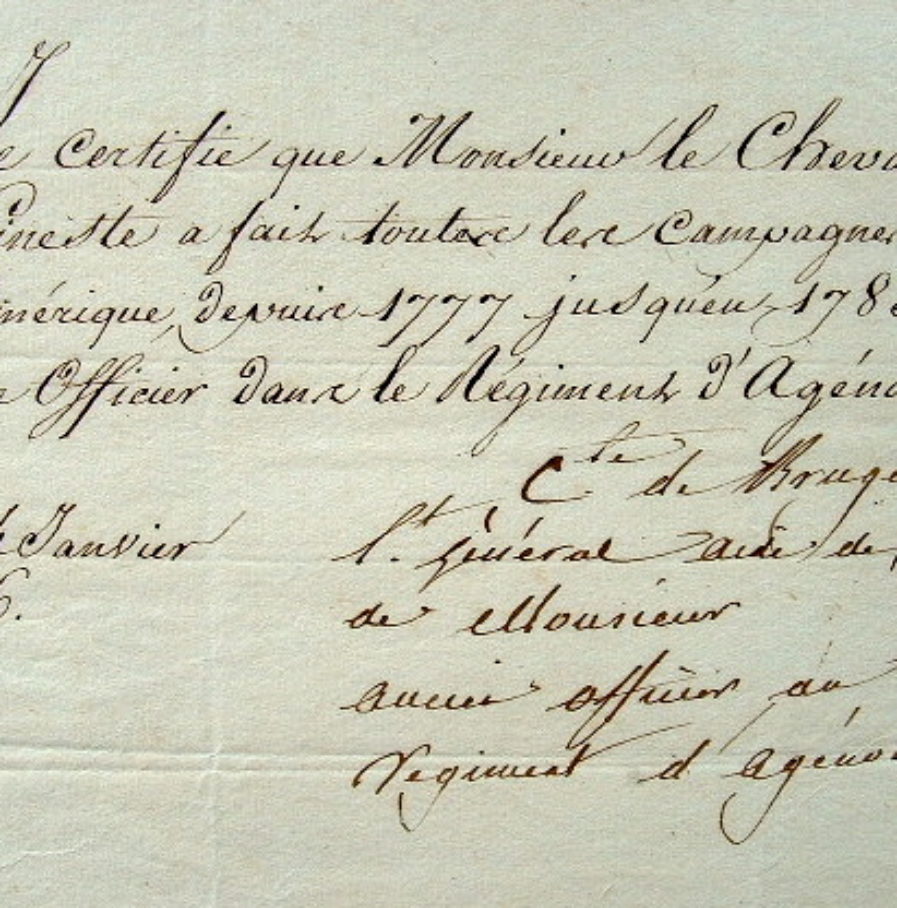 J
e certifie que Monsieur le Cheva
ineste a fait toutes les campagnes
mérique, depuis 1777 jusqu'en 178
e Officier dans le Régiment d'Agéno
Cte de Bruge
Janvier lt. général aide de
6. de Monsieur
ancien officier au
regiment d'agénoi